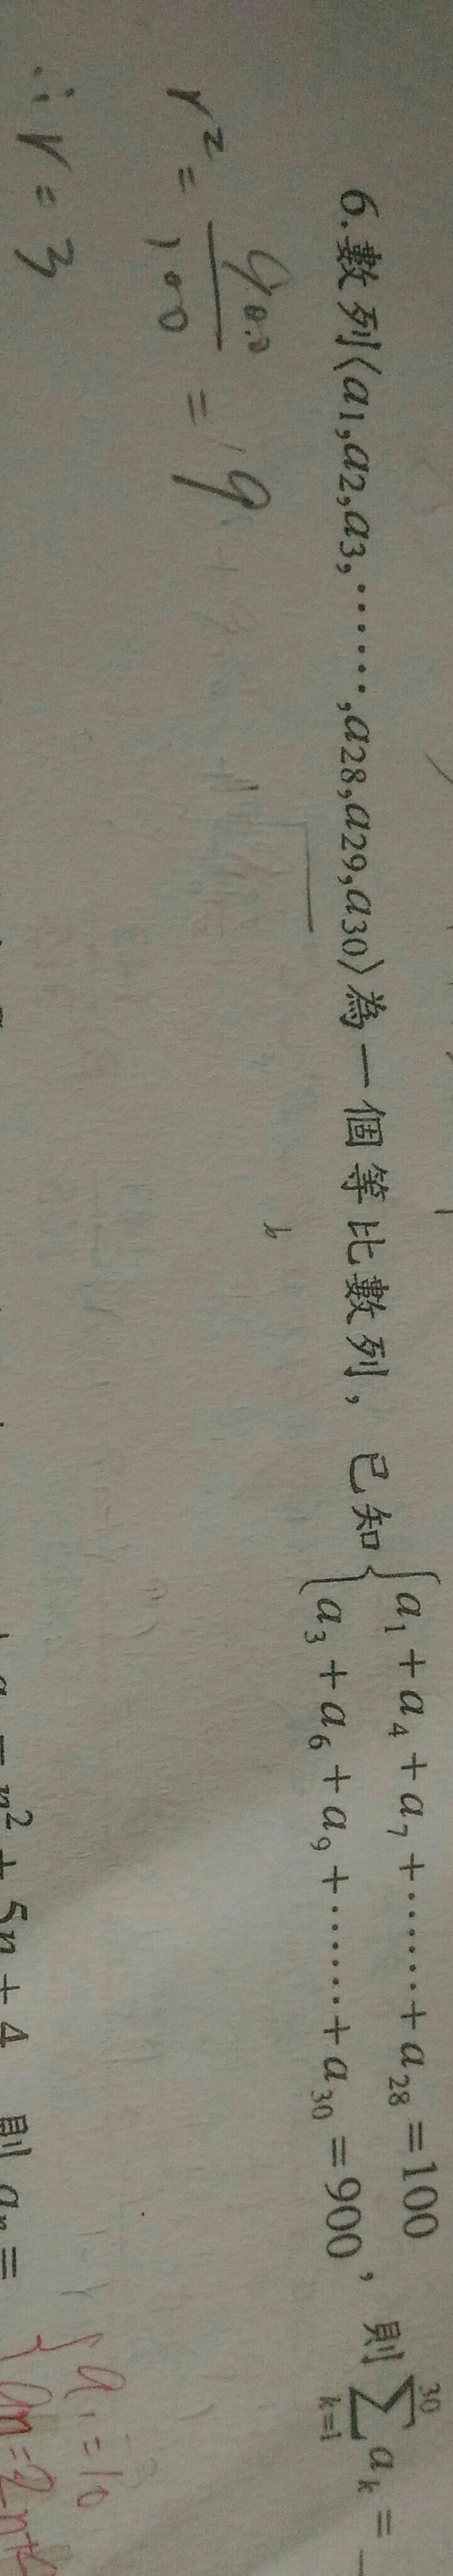 6.數列⟨a₁,a₂,a₃,⋯⋯,a₂₈,a₂₉,a₃₀⟩為一個等比數列，已知{a₁+a₄+a₇+⋯⋯+a₂₈=100
a₃+a₆+a₉+⋯⋯+a₃₀=900，則∑ₖ₌₁³⁰ aₖ=
r²=900/100=9
∴r=3
a₁=10
n²+5n+4 則aₙ=